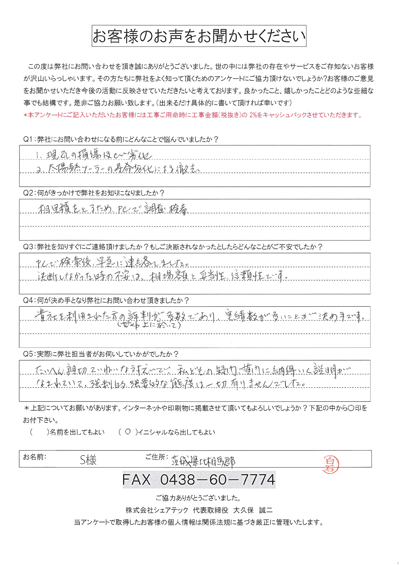 お客様のお声をお聞かせください
この度は弊社にお問い合わせを頂き誠にありがとうございました。世の中には弊社の存在やサービスをご存知ないお客様
が沢山いらっしゃいます。その方たちに弊社をよく知って頂くためのアンケートにご協力頂けないでしょうか？お客様のご意見
をお聞かせいただき今後の活動に反映させていきたいと考えております。良かったこと、嬉しかったことどのような些細な
事でも結構です。是非ご協力お願い致します。（出来るだけ具体的に書いて頂ければ幸いです）
*本アンケートにご記入いただいたお客様には工事ご用命時に工事金額(税抜き)の 2%をキャッシュバックさせていただきます。
Q1：弊社にお問い合わせになる前にどんなことで悩んでいましたか？
2. 太陽熱ソーラーの
による撤去。
Q2：何がきっかけで弊社をお知りになりましたか？
相見積をとるため、PCで調査、検索
Q3：弊社を知りすぐにご連絡頂けましたか？もしご決断されなかったとしたらどんなことがご不安でしたか？
PCで検索後、早急に連絡しました。
決断しなかった時の不安は、相場額と妥当性、信頼性です。
Q4：何が決め手となり弊社にお問い合わせ頂きましたか？
貴社を利用された方の評判が多数であり、実績数が多いことが決め手です。
Q5：実際に弊社担当者がお伺いしていかがでしたか？
たいへん親切、ていねいな
で、私どもの疑問、質問に納得いく説明が
なされていて、強制的、強要的な態度は一切有りませんでした。
＊上記についてお願いがあります。インターネットや印刷物に掲載させて頂いてもよろしいでしょうか？下記の中から〇印を
お付け下さい。
（　　）名前を出してもよい　（ 〇 ）イニシャルなら出してもよい
お名前：　S様　ご住所：
FAX 0438-60-7774
ご協力ありがとうございました。
株式会社シェアテック 代表取締役 大久保 誠二
当アンケートで取得したお客様の個人情報は関係法規に基づき厳正に管理いたします。